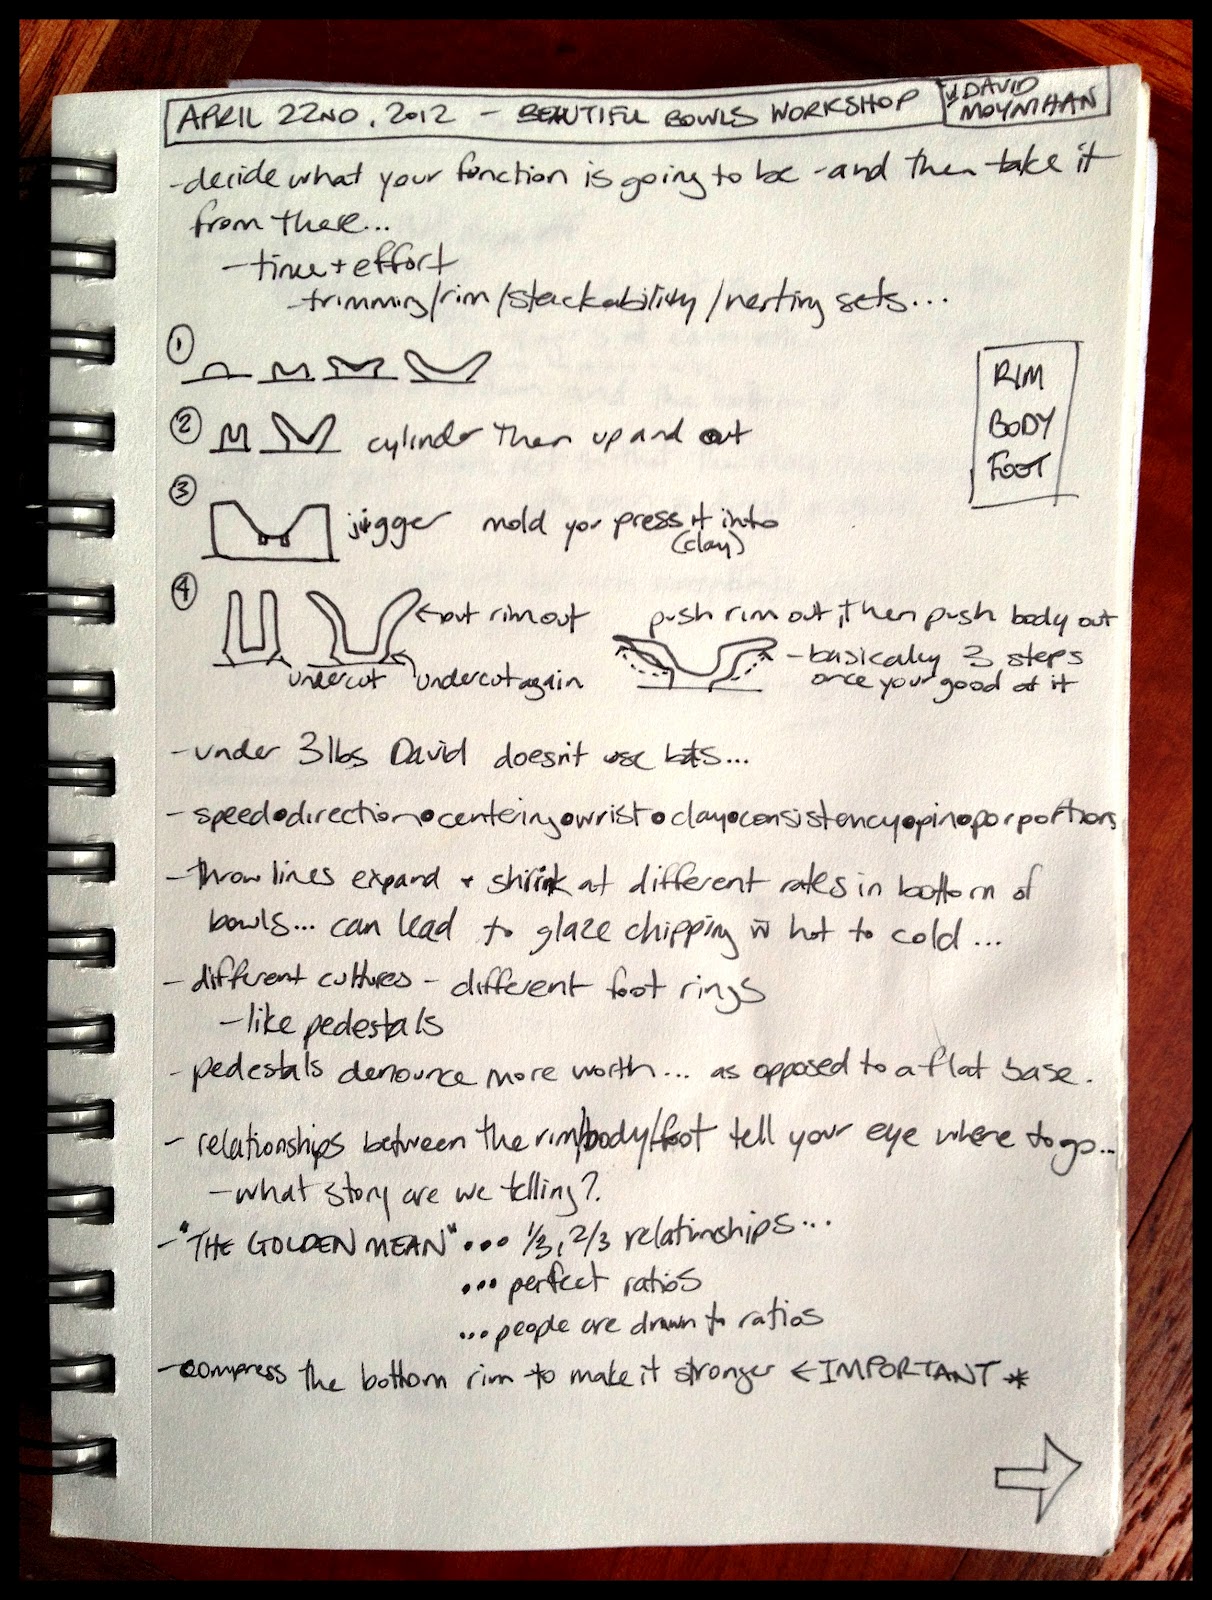 APRIL 22ND, 2012 - BEAUTIFUL BOWLS WORKSHOP
DAVID
MOYNIHAN
-decide what your function is going to be -and then take it
from there...
-time + effort
-trimming/rim/stackability/nesting sets...
①
RIM
BODY
FOOT
② cylinder then up and out
③ jigger mold you press it into
(clay)
④
←put rim out
undercut
undercut again
push rim out, then push body out
-basically 3 steps
once your good at it
-under 3lbs David doesn't use bats...
-speed•direction•centering•wrist•clay•consistency•pin•porportions
-throw lines expand + shrink at different rates in bottom of
bowls... can lead to glaze chipping w hot to cold...
-different cultures - different foot rings
-like pedestals
-pedestals denounce more worth... as opposed to a flat base.
-relationships between the rim/body/foot tell your eye where to go...
-what story are we telling?
-"THE GOLDEN MEAN"... 1/3, 2/3 relationships...
...perfect ratios
...people are drawn to ratios
-compress the bottom rim to make it stronger ←IMPORTANT *